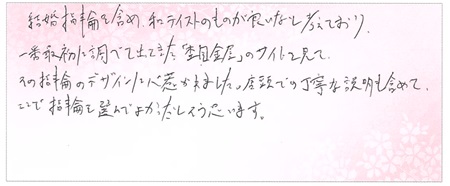 結婚指輪を含め、和テイストのものが良いなと考えており、
一番最初に調べて出てきた「杢目金屋」のサイトを見て、
その指輪のデザインに心惹かれました。店頭での丁寧な説明も含めて、
ここで指輪を選んでよかったと思います。